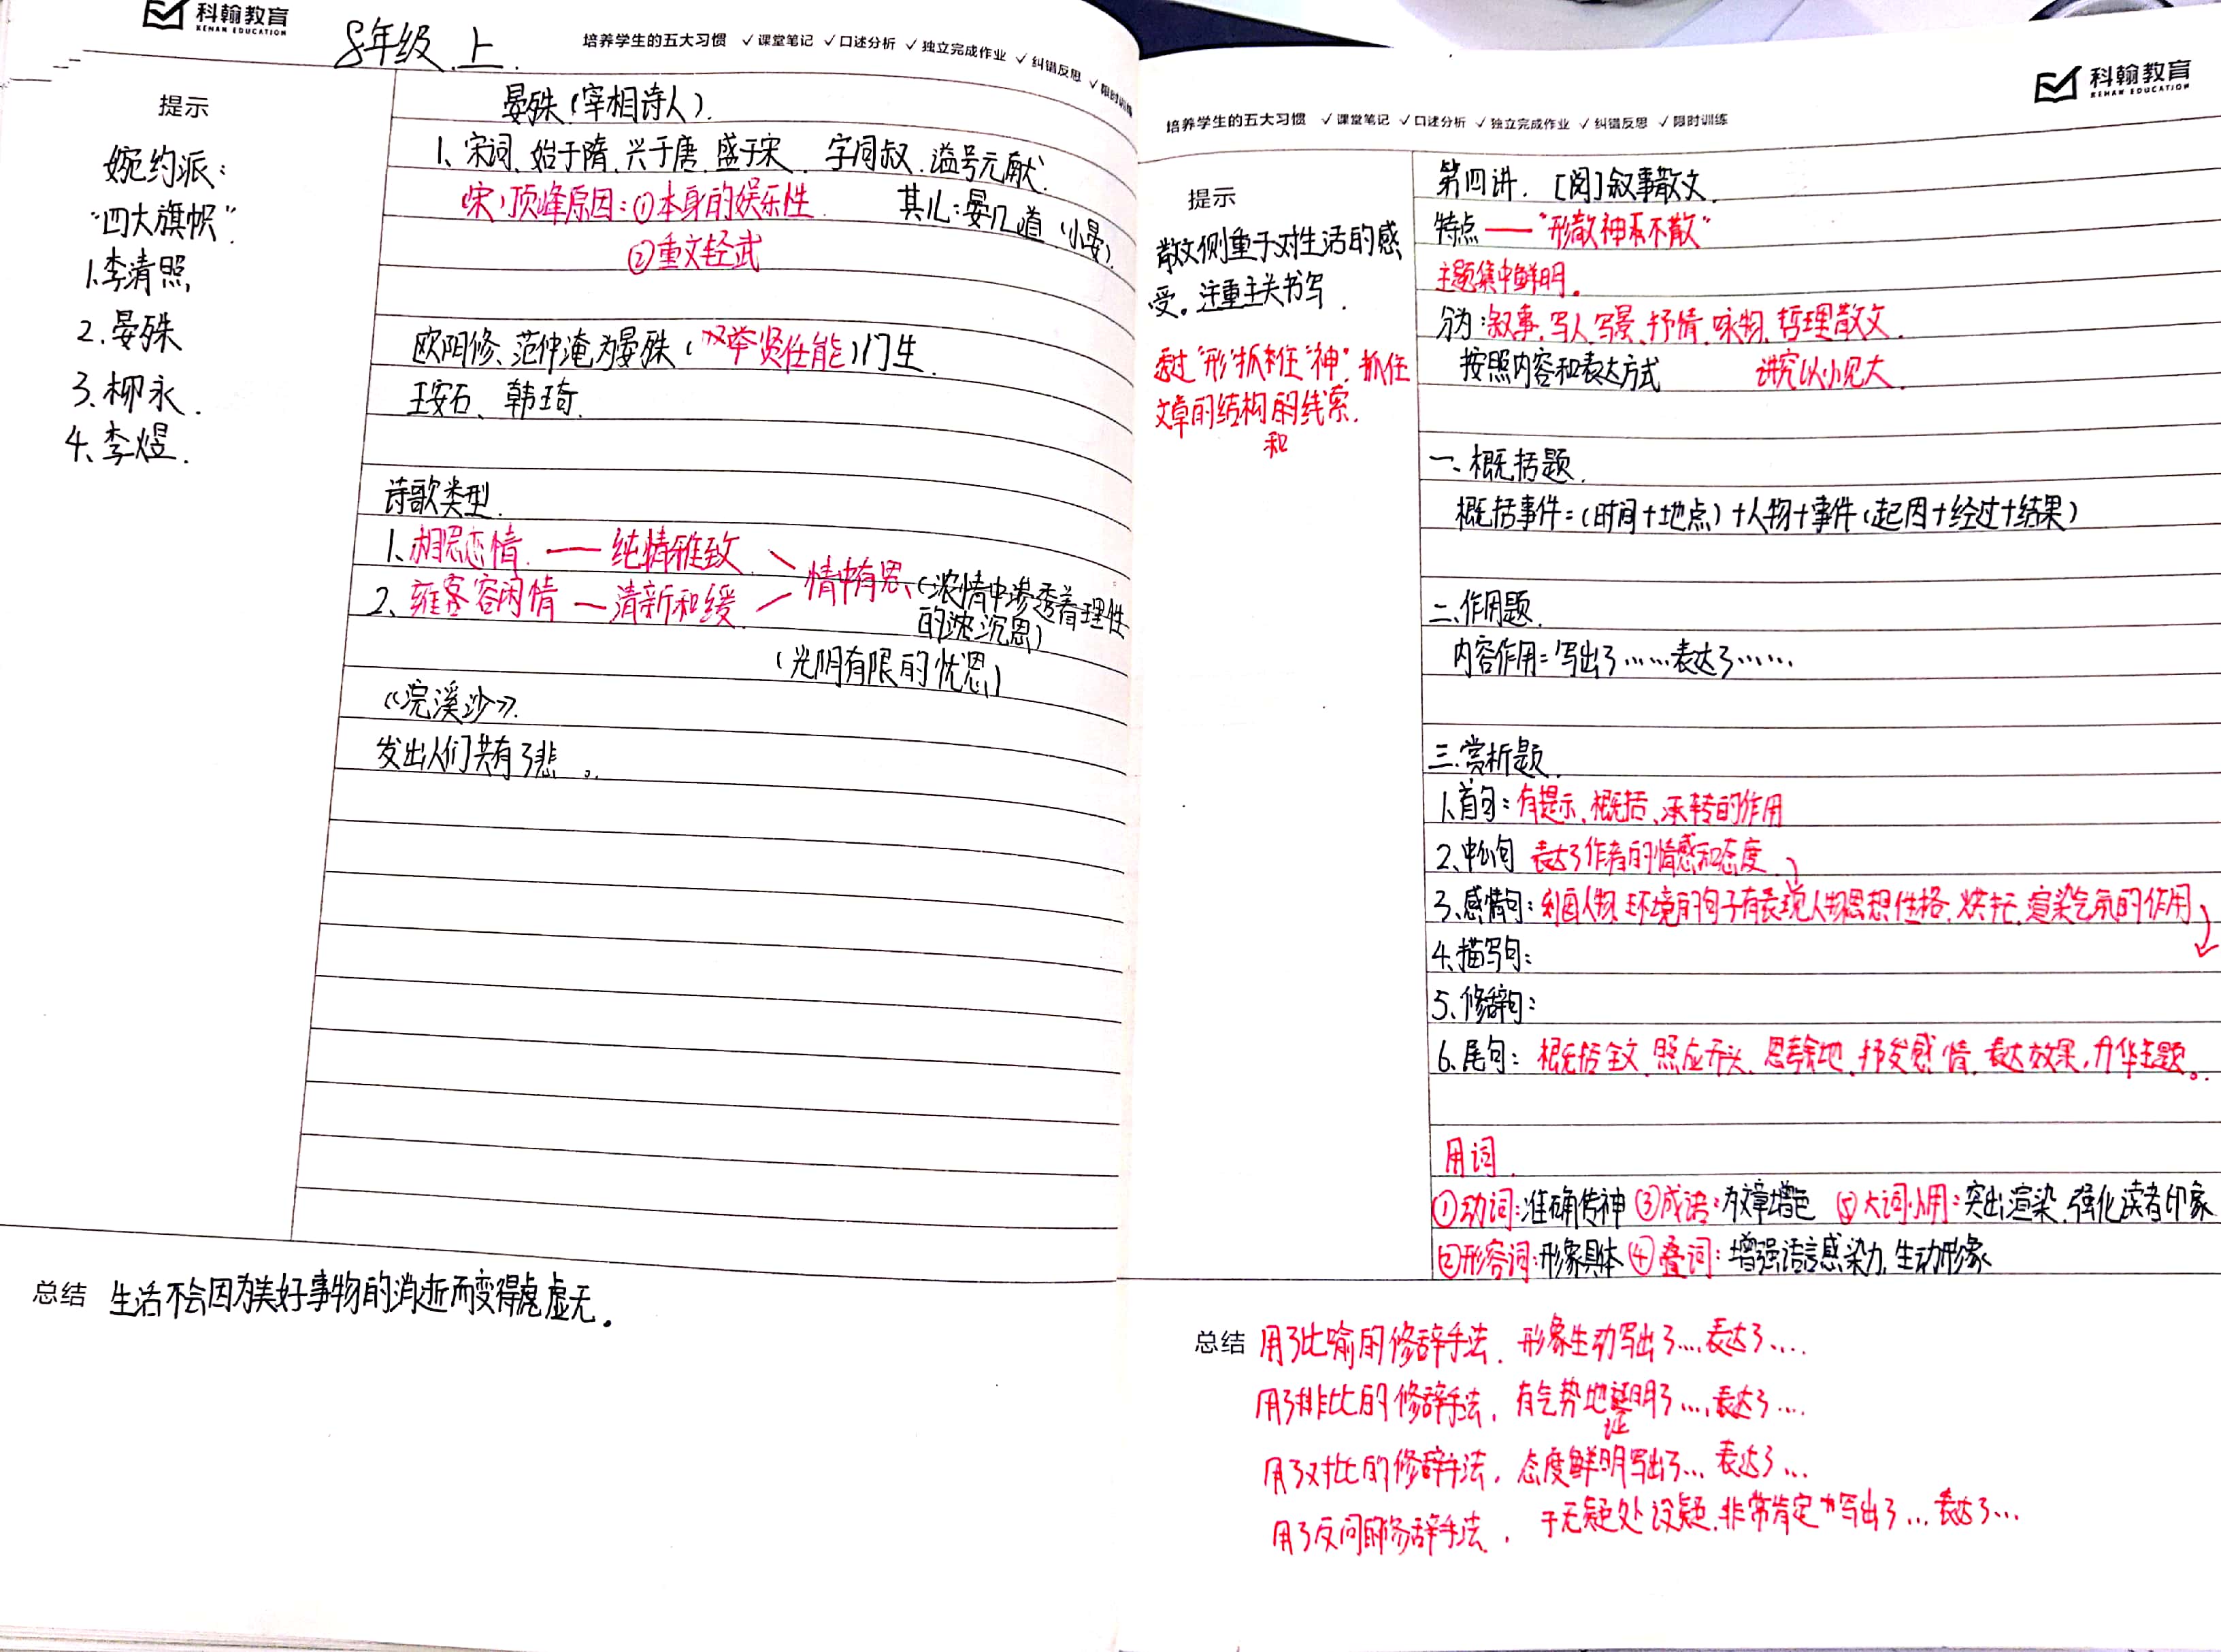 科翰教育
KEHAN EDUCATION
8年级.上.
培养学生的五大习惯 ✓课堂笔记 ✓口述分析 ✓独立完成作业 ✓纠错反思 ✓限时训练
提示
婉约派:
"四大旗帜".
1.李清照,
2.晏殊
3.柳永.
4.李煜.
晏殊(宰相诗人).
1、宋词,始于隋,兴于唐,盛于宋. 字同叔.谥号元献.
(宋)顶峰原因:①本身的娱乐性. 其儿:晏几道(小晏).
②重文轻武
欧阳修、范仲淹为晏殊(举贤任能)门生.
王安石、韩琦.
诗歌类型.
1.相思恋情.——纯情雅致.
2、雍容闲情—清新和缓.
情中有思、(浓情中渗透着理性
的沉思)
(光阴有限的忧思)
《浣溪沙》.
发出人们共有了悲。
总结 生活不会因为美好事物的消逝而变得虚无。
科翰教育
KEHAN EDUCATION
培养学生的五大习惯 ✓课堂笔记 ✓口述分析 ✓独立完成作业 ✓纠错反思 ✓限时训练
提示
散文侧重于对生活的感
受。注重主关书写.
透过"形"抓住"神".抓住
文章的结构和线索.
第四讲.[阅]叙事散文.
特点——"形散神不散"
主题集中鲜明。
分为:叙事,写人,写景,抒情,咏物,哲理散文.
按照内容和表达方式 讲究以小见大.
一.概括题.
概括事件=(时间+地点)+人物+事件(起因+经过+结果)
二.作用题.
内容作用=写出了……表达了……
三.赏析题.
1.首句:有提示、概括、承转的作用
2、中心句 表达了作者的情感和态度.
3.感情句:刻画人物,环境的句子有表现人物思想性格,烘托,渲染气氛的作用
4.描写句:
5.修辞句:
6.尾句:概括全文,照应开头,思考余地,抒发感情,表达效果,升华主题。
用词.
①动词:准确传神 ③成语:为文章增色 ⑤大词小用:突出渲染.强化读者印象
②形容词:形象具体 ④叠词:增强语言感染力,生动形象
总结 用了比喻的修辞手法.形象生动写出了…,表达了….
用了排比的修辞手法,有气势地证明了…,表达了…
用了对比的修辞手法,态度鲜明写出了…表达了…
用了反问的修辞手法,于无疑处设疑.非常肯定地写出了…表达了…